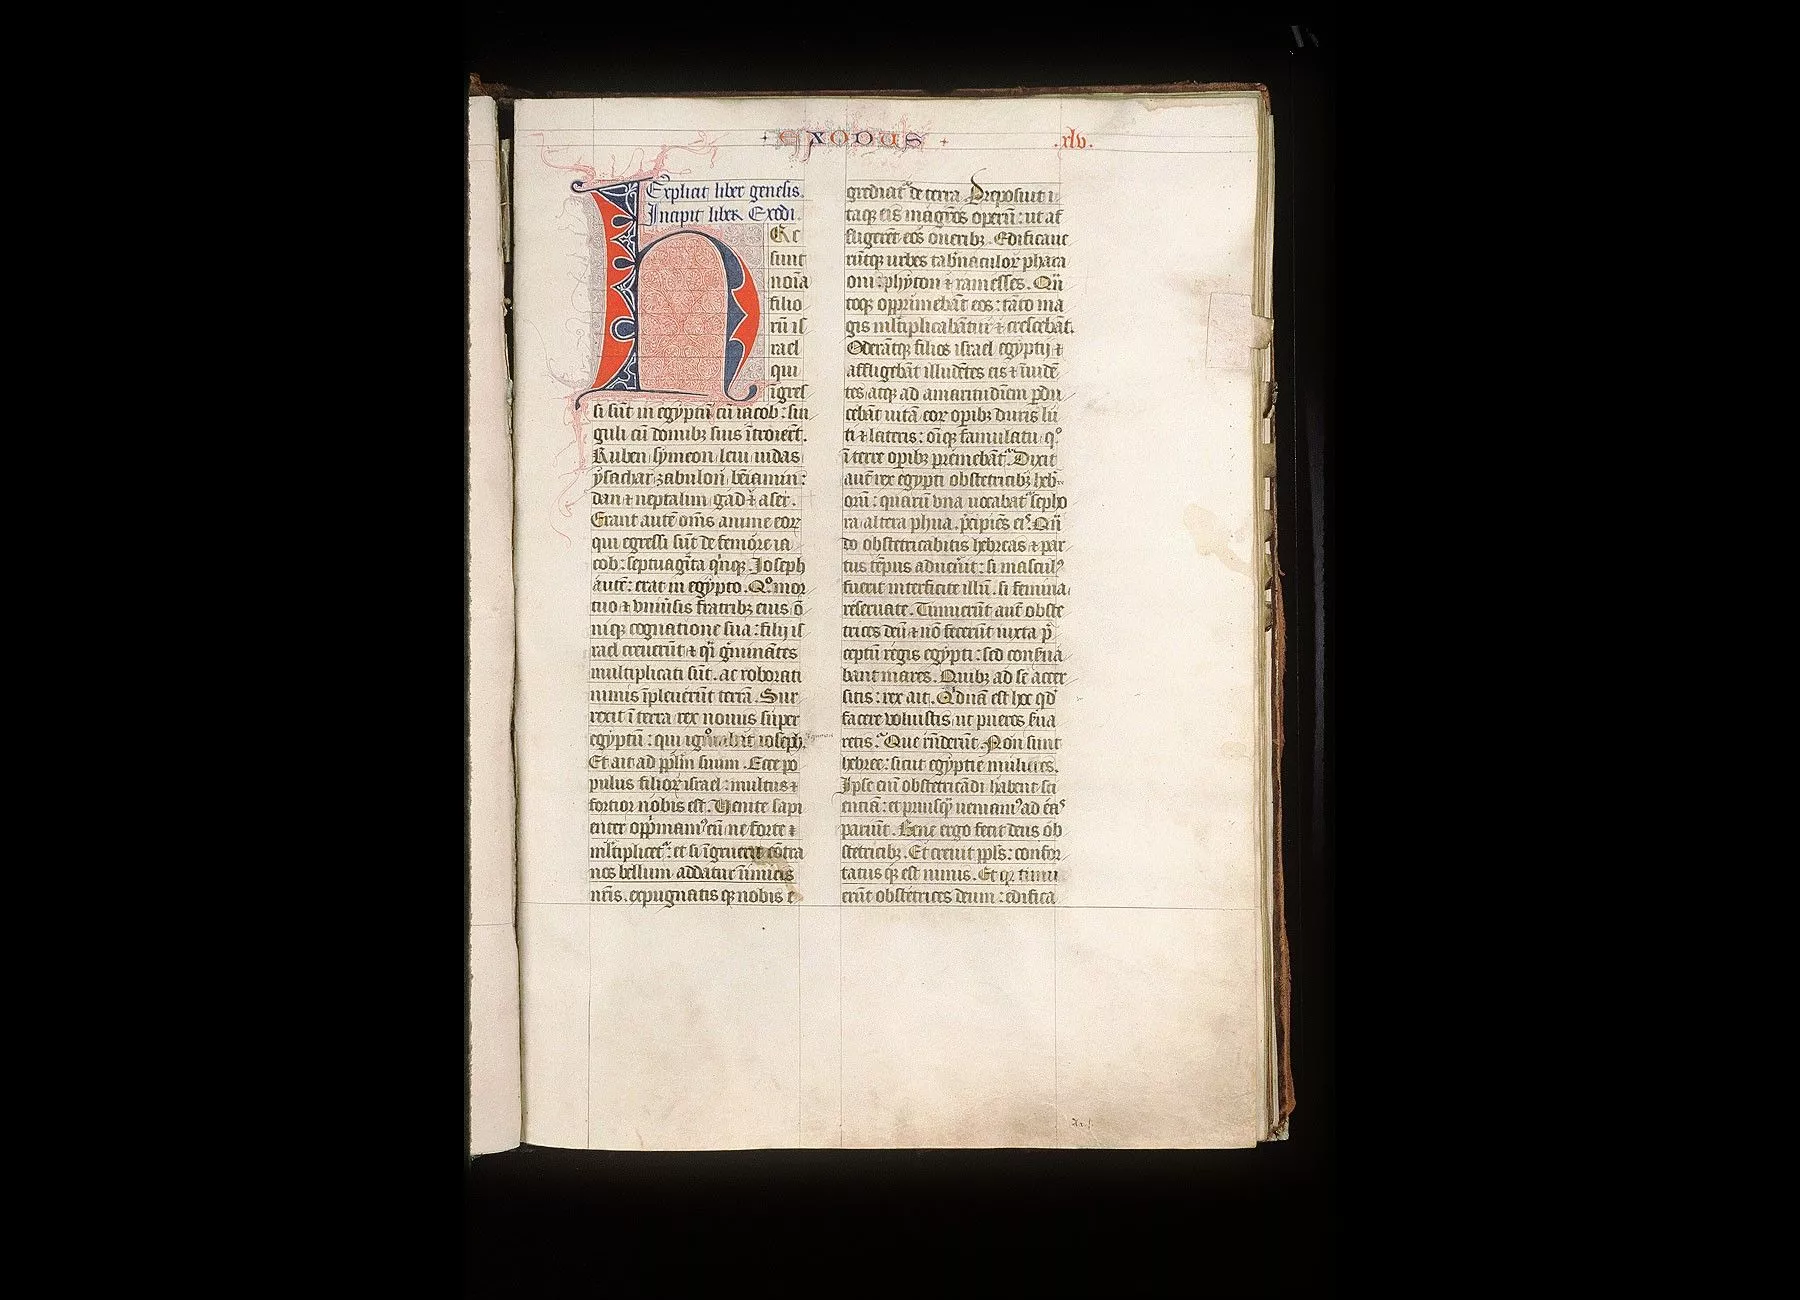 EXODUS
.xlv.
Explicit liber genesis.
Incipit liber Exodi.
HEc
sunt
noīa
filio
rū is
rael
qui
īgres
si sūt in egyptū cū iacob: sin
guli cū domibꝫ suis ītroierūt.
Ruben symeon leui iudas
ysachar zabulon beiamin:
dan ⁊ neptalim gad ⁊ aser.
Erant autē om̄s anime eoꝝ
qui egressi sūt de femore ia
cob: septuagīta qͥnqꝫ. Joseph
autē: erat in egypto. Qͦ mor
tuo ⁊ vniūsis fratribꝫ eius ō
niqꝫ cognatione sua: filij is
rael creuerūt ⁊ qͣi gͥminātes
multiplicati sūt. ac roborati
nimis īpleuerūt terrā. Sur
rexit ī terra rex nouus super
egyptū: qui igͦrabat ioseph.
Et ait ad pp̄lm suum. Ecce po
pulus filioꝝ israel: multus ⁊
fortior nobis est. Uenite sapi
enter opp̄mamꝰ eū ne forte ⁊
ml̄tiplicet᷑: et si īgruerit cōtra
nos bellum addatur īimicis
nr̄is. expugnatis qꝫ nobis e
grediat᷑ de terra. Preposuit i
taqꝫ eis magr̄os operū: ut af
fligerēt eos oneribꝫ. Edificaue
rūtqꝫ urbes tab̄naculoꝝ phara
oni: phyton ⁊ ramesses. Quā
toqꝫ opprimebāt eos: tāto ma
gis ml̄tiplicabātur ⁊ crescebāt.
Oderātqꝫ filios israel egyptij ⁊
affligebāt illudētes eis ⁊ īuidē
tes atqꝫ ad amaritudinem ꝑdu
cebāt uitā eoꝝ oꝑibꝫ duris lu
ti ⁊ lateris: om̄iqꝫ famulatu qͦ
ī terre oꝑibꝫ premebāt᷑. Dixit
aut̄ rex egypti obstetricibꝫ heb
orū: quarū vna uocabat᷑ sepho
ra altera phua. p̄cipiēs eis. Quā
do obstetricabitis hebreas ⁊ par
tus tēpus aduenerit: si masculꝰ
fuerit interficite illū. si femina
reseruate. Timuerūt aut̄ obste
trices deū ⁊ nō fecerūt iuxta p̄
ceptū regis egypti: sed conserua
bant mares. Quibꝫ ad se accer
sitis: rex ait. Qͥdnā est hoc qd̄
facere voluistis ut pueros serua
retis. Que rn̄derūt. Non sunt
hebree: sicut egyptie mulieres.
Ipse eni obstetricādi habent sci
entiā: et priusqͣ ueniamꝰ ad eas
pariūt. Bene ergo fecit deus ob
stetricibꝫ. Et creuit ppl̄s: confor
tatus qꝫ est nimis. Et qꝛ timu
erūt obstetrices deum: edifica